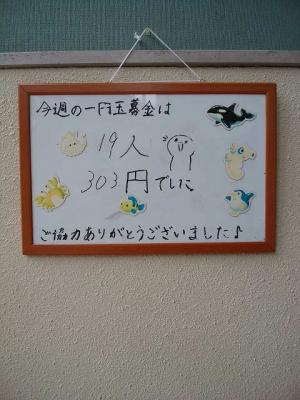 今週の一円玉募金は
19人
303円でした
ご協力ありがとうございました♪